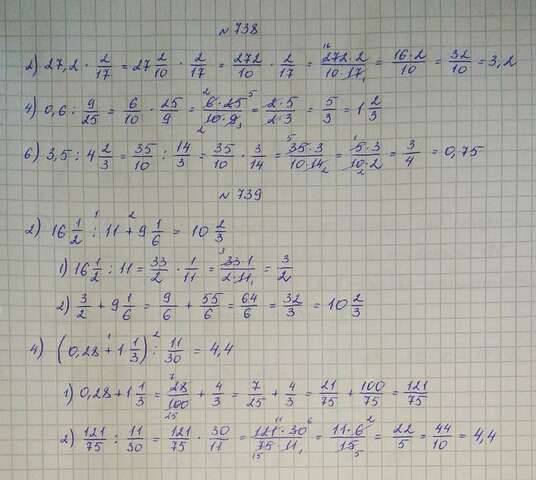 №738
2) 27,2 · 2/17 = 27 2/10 · 2/17 = 272/10 · 2/17 = 272·2/10·17 = 16·2/10 = 32/10 = 3,2
4) 0,6 : 9/25 = 6/10 · 25/9 = 6·25/10·9 = 2·5/2·3 = 5/3 = 1 2/3
6) 3,5 : 4 2/3 = 35/10 : 14/3 = 35/10 · 3/14 = 35·3/10·14 = 5·3/10·2 = 3/4 = 0,75
№739
2) 16 1/2 : 11 + 9 1/6 = 10 2/3
1) 16 1/2 : 11 = 33/2 · 1/11 = 33·1/2·11 = 3/2
2) 3/2 + 9 1/6 = 9/6 + 55/6 = 64/6 = 32/3 = 10 2/3
4) (0,28 + 1 1/3) : 11/30 = 4,4
1) 0,28 + 1 1/3 = 28/100 + 4/3 = 7/25 + 4/3 = 21/75 + 100/75 = 121/75
2) 121/75 : 11/30 = 121/75 · 30/11 = 121·30/75·11 = 11·6/15 = 22/5 = 44/10 = 4,4